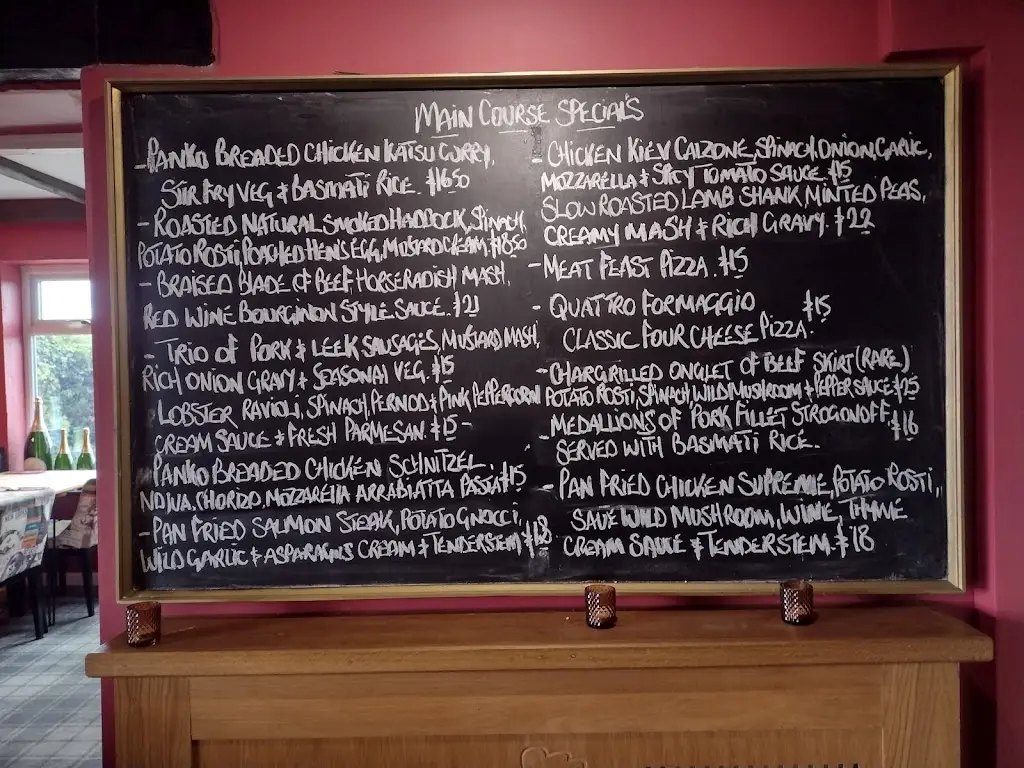 MAIN COURSE SPECIALS
- PANKO BREADED CHICKEN KATSU CURRY,
STIR FRY VEG & BASMATI RICE. £16.50
- ROASTED NATURAL SMOKED HADDOCK, SPINACH,
POTATO ROSTI, POACHED HENS EGG, MUSTARD CREAM, £18.50
- BRAISED BLADE OF BEEF HORSERADISH MASH,
RED WINE BOURGINON STYLE SAUCE. £21
- TRIO OF PORK & LEEK SAUSAGES, MUSTARD MASH,
RICH ONION GRAVY & SEASONAL VEG. £15
LOBSTER RAVIOLI, SPINACH, PERNOD & PINK PEPPERCORN
CREAM SAUCE & FRESH PARMESAN. £15 -
PANKO BREADED CHICKEN SCHNITZEL,
NDUJA, CHORIZO, MOZZARELLA ARRABIATTA PASTA £15
- PAN FRIED SALMON STEAK, POTATO GNOCCI,
WILD GARLIC & ASPARAGUS CREAM & TENDERSTEM £18
- CHICKEN KIEV CALZONE, SPINACH, ONION, GARLIC,
MOZZARELLA & SPICY TOMATO SAUCE. £15
SLOW ROASTED LAMB SHANK, MINTED PEAS,
CREAMY MASH & RICH GRAVY. £22
- MEAT FEAST PIZZA. £15
- QUATTRO FORMAGGIO £15
CLASSIC FOUR CHEESE PIZZA.
- CHARGRILLED ONGLET OF BEEF SKIRT (RARE)
POTATO ROSTI, SPINACH WILD MUSHROOM & PEPPER SAUCE £25
- MEDALLIONS OF PORK FILLET STROGONOFF, £16
SERVED WITH BASMATI RICE.
- PAN FRIED CHICKEN SUPREME, POTATO ROSTI,
SAUTE WILD MUSHROOM, WINE, THYME
CREAM SAUCE & TENDERSTEM. £18